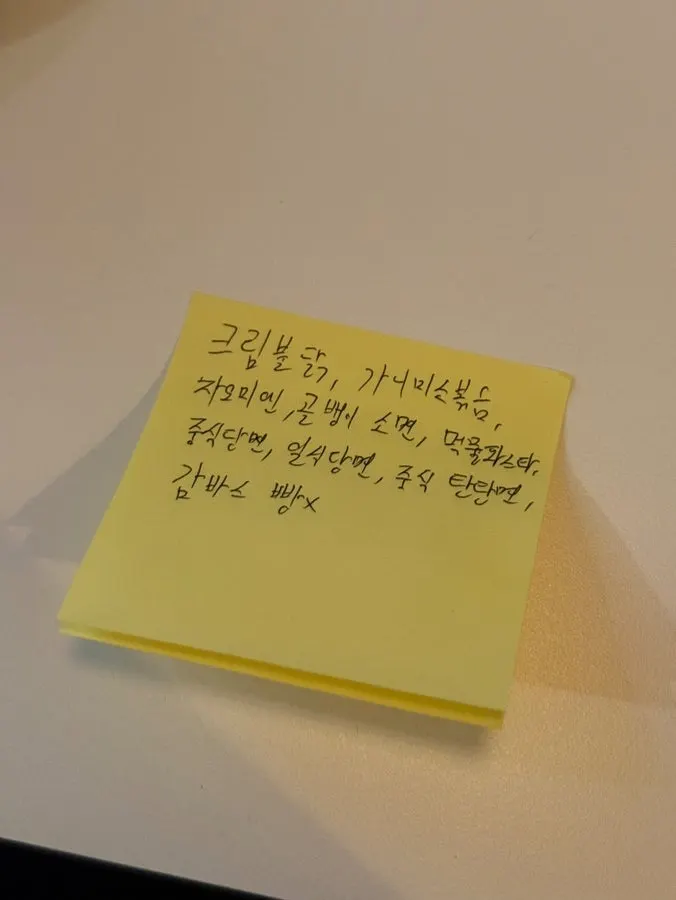 크림불닭, 가니미소볶음,
자오미엔, 골뱅이 소면, 먹물파스타,
중식당면, 일식당면, 중식 탄탄면,
감바스 빵x